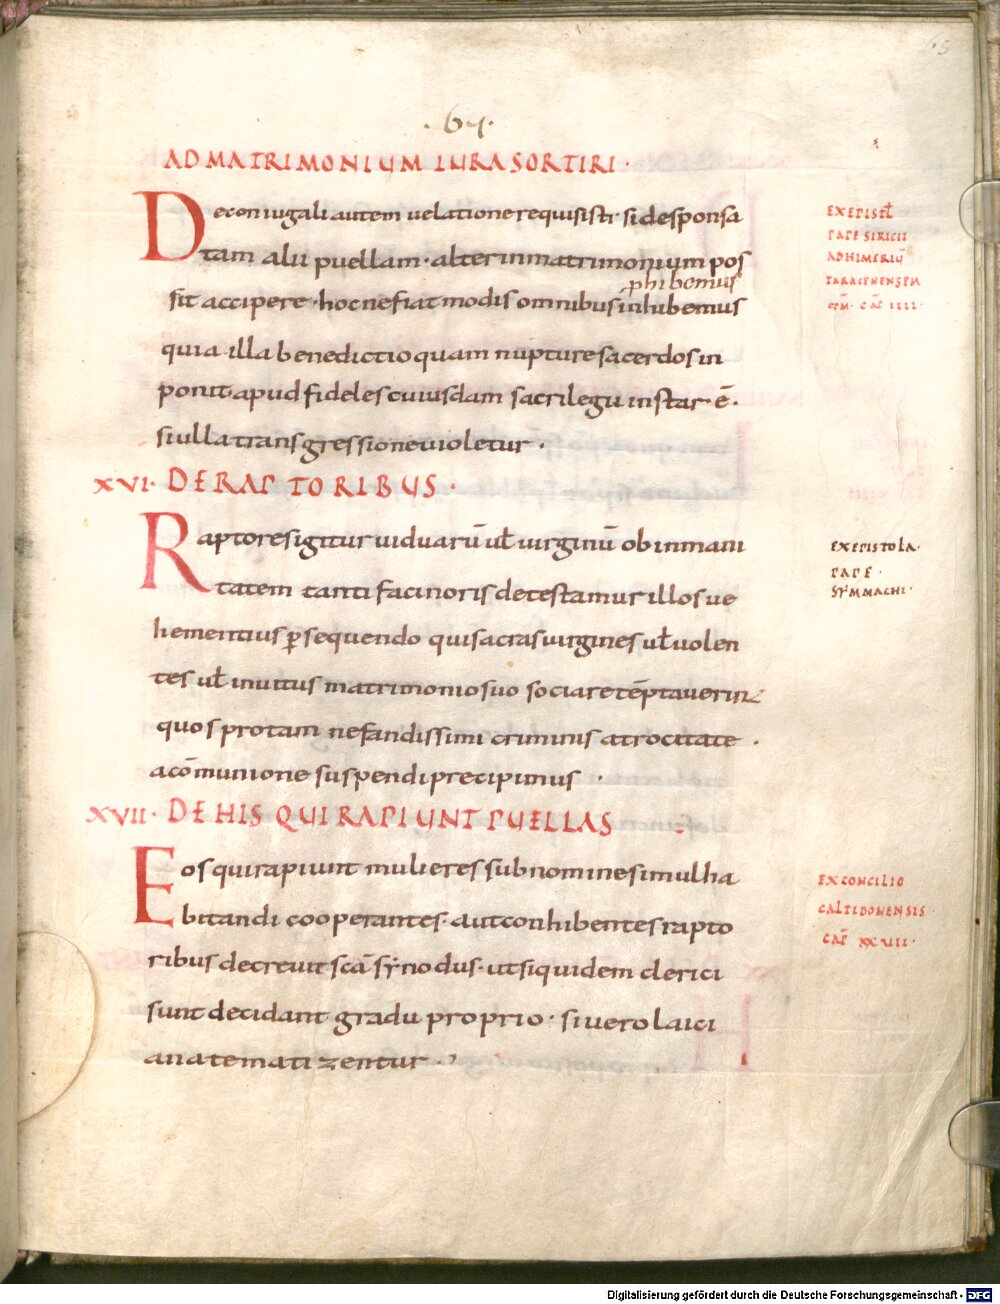 65
· 65 ·
AD MATRIMONIUM IURA SORTIRI ·
De coniugali autem uelatione requisisti si desponsa
tam alii puellam · alter in matrimonium pos
phibemus
sit accipere · hoc ne fiat modis omnibus inhibemus
quia illa benedictio quam nupture sacerdos in
ponit apud fideles cuiusdam sacrilegii instar · ē ·
si ulla transgressione uioletur ·
EX EPISTL
PAPE SIRICII
AD HIMERIŪ
TARACENENSEM
EPM · CAP IIII ·
XVI · DE RAPTORIBUS ·
Raptores igitur uiduarū uł uirginū ob inmani
tatem tanti facinoris detestamur illos ue
hementius psequendo qui sacras uirgines uł uolen
tes uł inuitus matrimonio suo sociare tēptauerint
quos pro tam nefandissimi criminis atrocitate ·
a cōmunione suspendi precipimus ·
EX EPISTOLA
PAPE ·
SYMMACHI ·
XVII · DE HIS QUI RAPIUNT PUELLAS
Eos qui rapiunt mulieres sub nomine simul ha
bitandi cooperantes · aut conhibentes rapto
ribus decreuit scā synodus · ut siquidem clerici
sunt decidant gradu proprio · si uero laici
anatematizentur ·
EX CONCILIO
CALTIDONENSIS
CAP XXVII ·
Digitalisierung gefördert durch die Deutsche Forschungsgemeinschaft · DFG